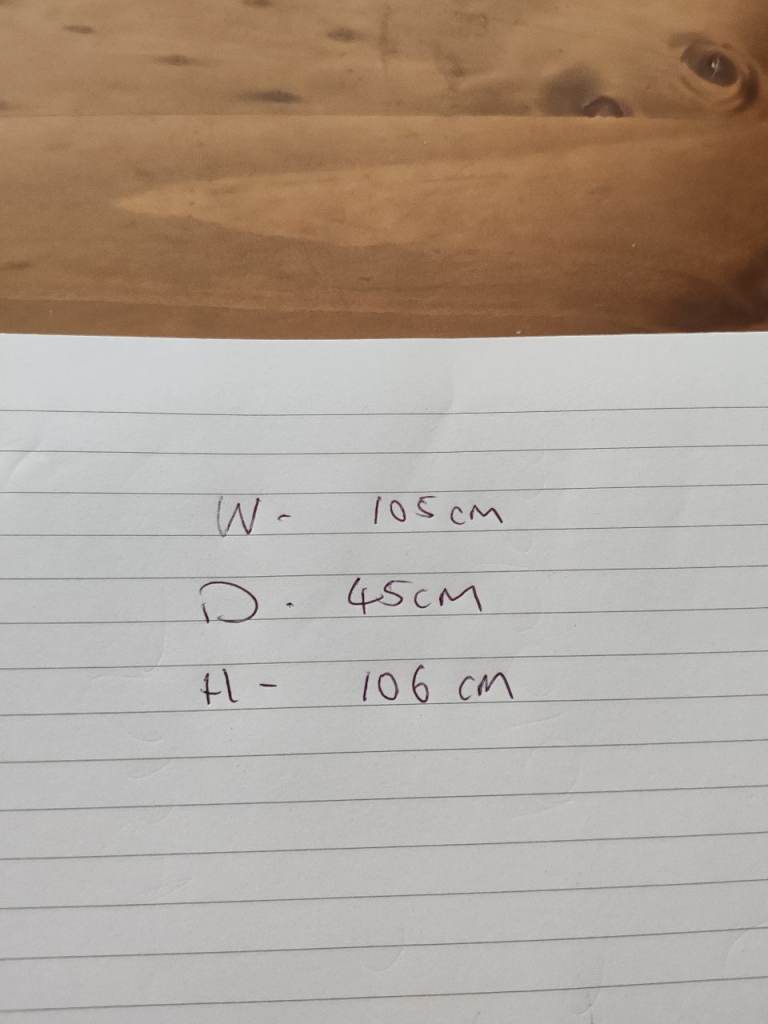 W - 105 cm
D. 45 cm
H - 106 cm